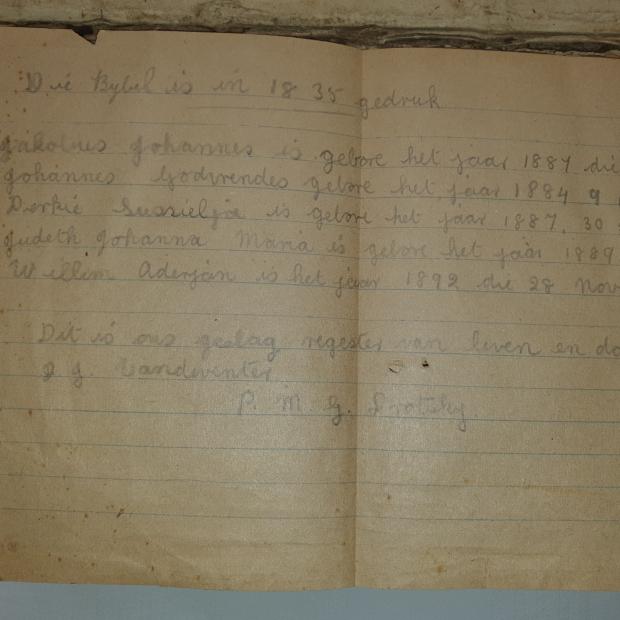 Die Bybel is in 1835 gedruk
Jakobus Johannes is gebore het jaar 1887 die
Johannes gebore het jaar 1884 9
Derkie Suszielja is gebore het jaar 1887. 30
Judeth Johanna Maria is gebore het jaar 1889
Willem Aderjan is het jaar 1892 die 28 Nov
Dit is ons geslag regester van leven en do
J. G. Vandeventer
P. M. G. Protsky